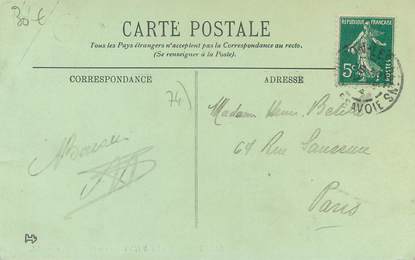 30 €
CARTE POSTALE
Tous les Pays étrangers n'acceptent pas la Correspondance au recto.
(Se renseigner à la Poste).
CORRESPONDANCE
ADRESSE
REPUBLIQUE FRANÇAISE
5c
POSTES
SAVOIE
74
Madame Henri
64 Rue
Paris